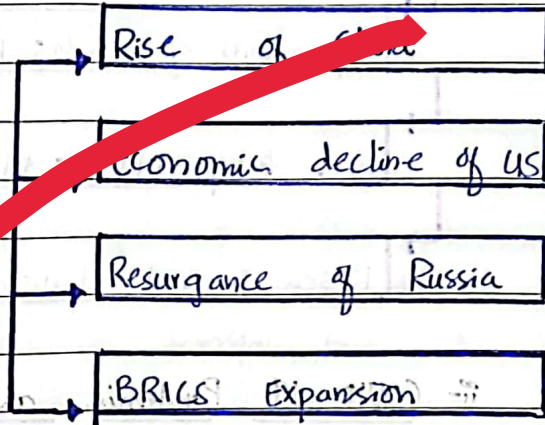 Rise of China
Economic decline of US
Resurgance of Russia
BRICS Expansion